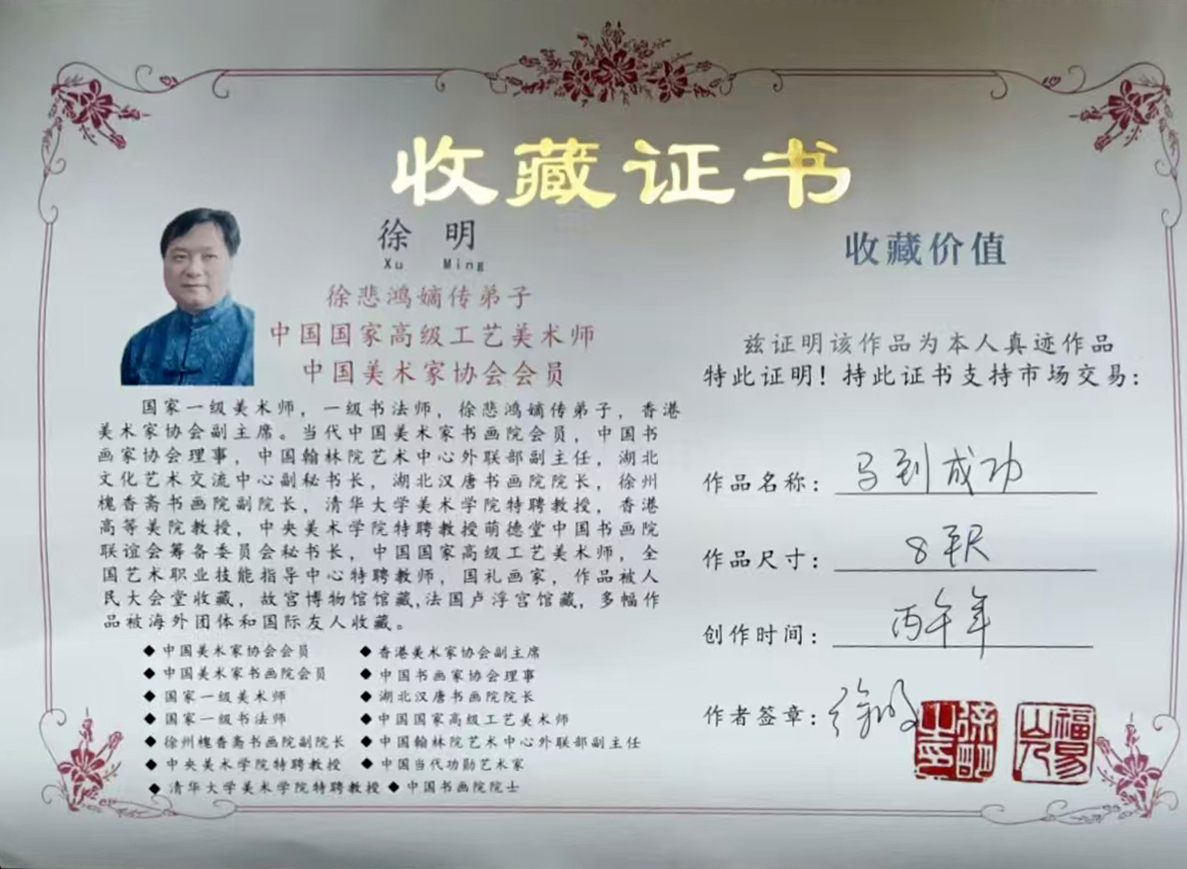 收藏证书
徐 明
Xu Ming
徐悲鸿嫡传弟子
中国国家高级工艺美术师
中国美术家协会会员
国家一级美术师，一级书法师，徐悲鸿嫡传弟子，香港
美术家协会副主席。当代中国美术家书画院会员，中国书
画家协会理事，中国翰林院艺术中心外联部副主任，湖北
文化艺术交流中心副秘书长，湖北汉唐书画院院长，徐州
槐香斋书画院副院长，清华大学美术学院特聘教授，香港
高等美院教授，中央美术学院特聘教授萌德堂中国书画院
联谊会筹备委员会秘书长，中国国家高级工艺美术师，全
国艺术职业技能指导中心特聘教师，国礼画家，作品被人
民大会堂收藏，故宫博物馆馆藏,法国卢浮宫馆藏，多幅作
品被海外团体和国际友人收藏。
◆ 中国美术家协会会员
◆ 中国美术家书画院会员
◆ 国家一级美术师
◆ 国家一级书法师
◆ 徐州槐香斋书画院副院长
◆ 中央美术学院特聘教授
◆ 清华大学美术学院特聘教授
◆ 香港美术家协会副主席
◆ 中国书画家协会理事
◆ 湖北汉唐书画院院长
◆ 中国国家高级工艺美术师
◆ 中国翰林院艺术中心外联部副主任
◆ 中国当代功勋艺术家
◆ 中国书画院院士
收藏价值
兹证明该作品为本人真迹作品
特此证明！持此证书支持市场交易：
作品名称：马到成功
作品尺寸：8平尺
创作时间：丙午年
作者签章：徐明
徐明之印